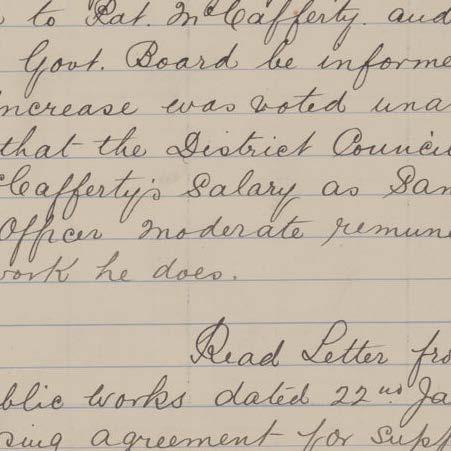 to Pat. McCafferty. and
Govt. Board be informe
ncrease was voted una
that the District Counci
Cafferty's Salary as San
Officer moderate remune
work he does.
Read Letter fro
blic works dated 22nd Ja
sing agreement for supp